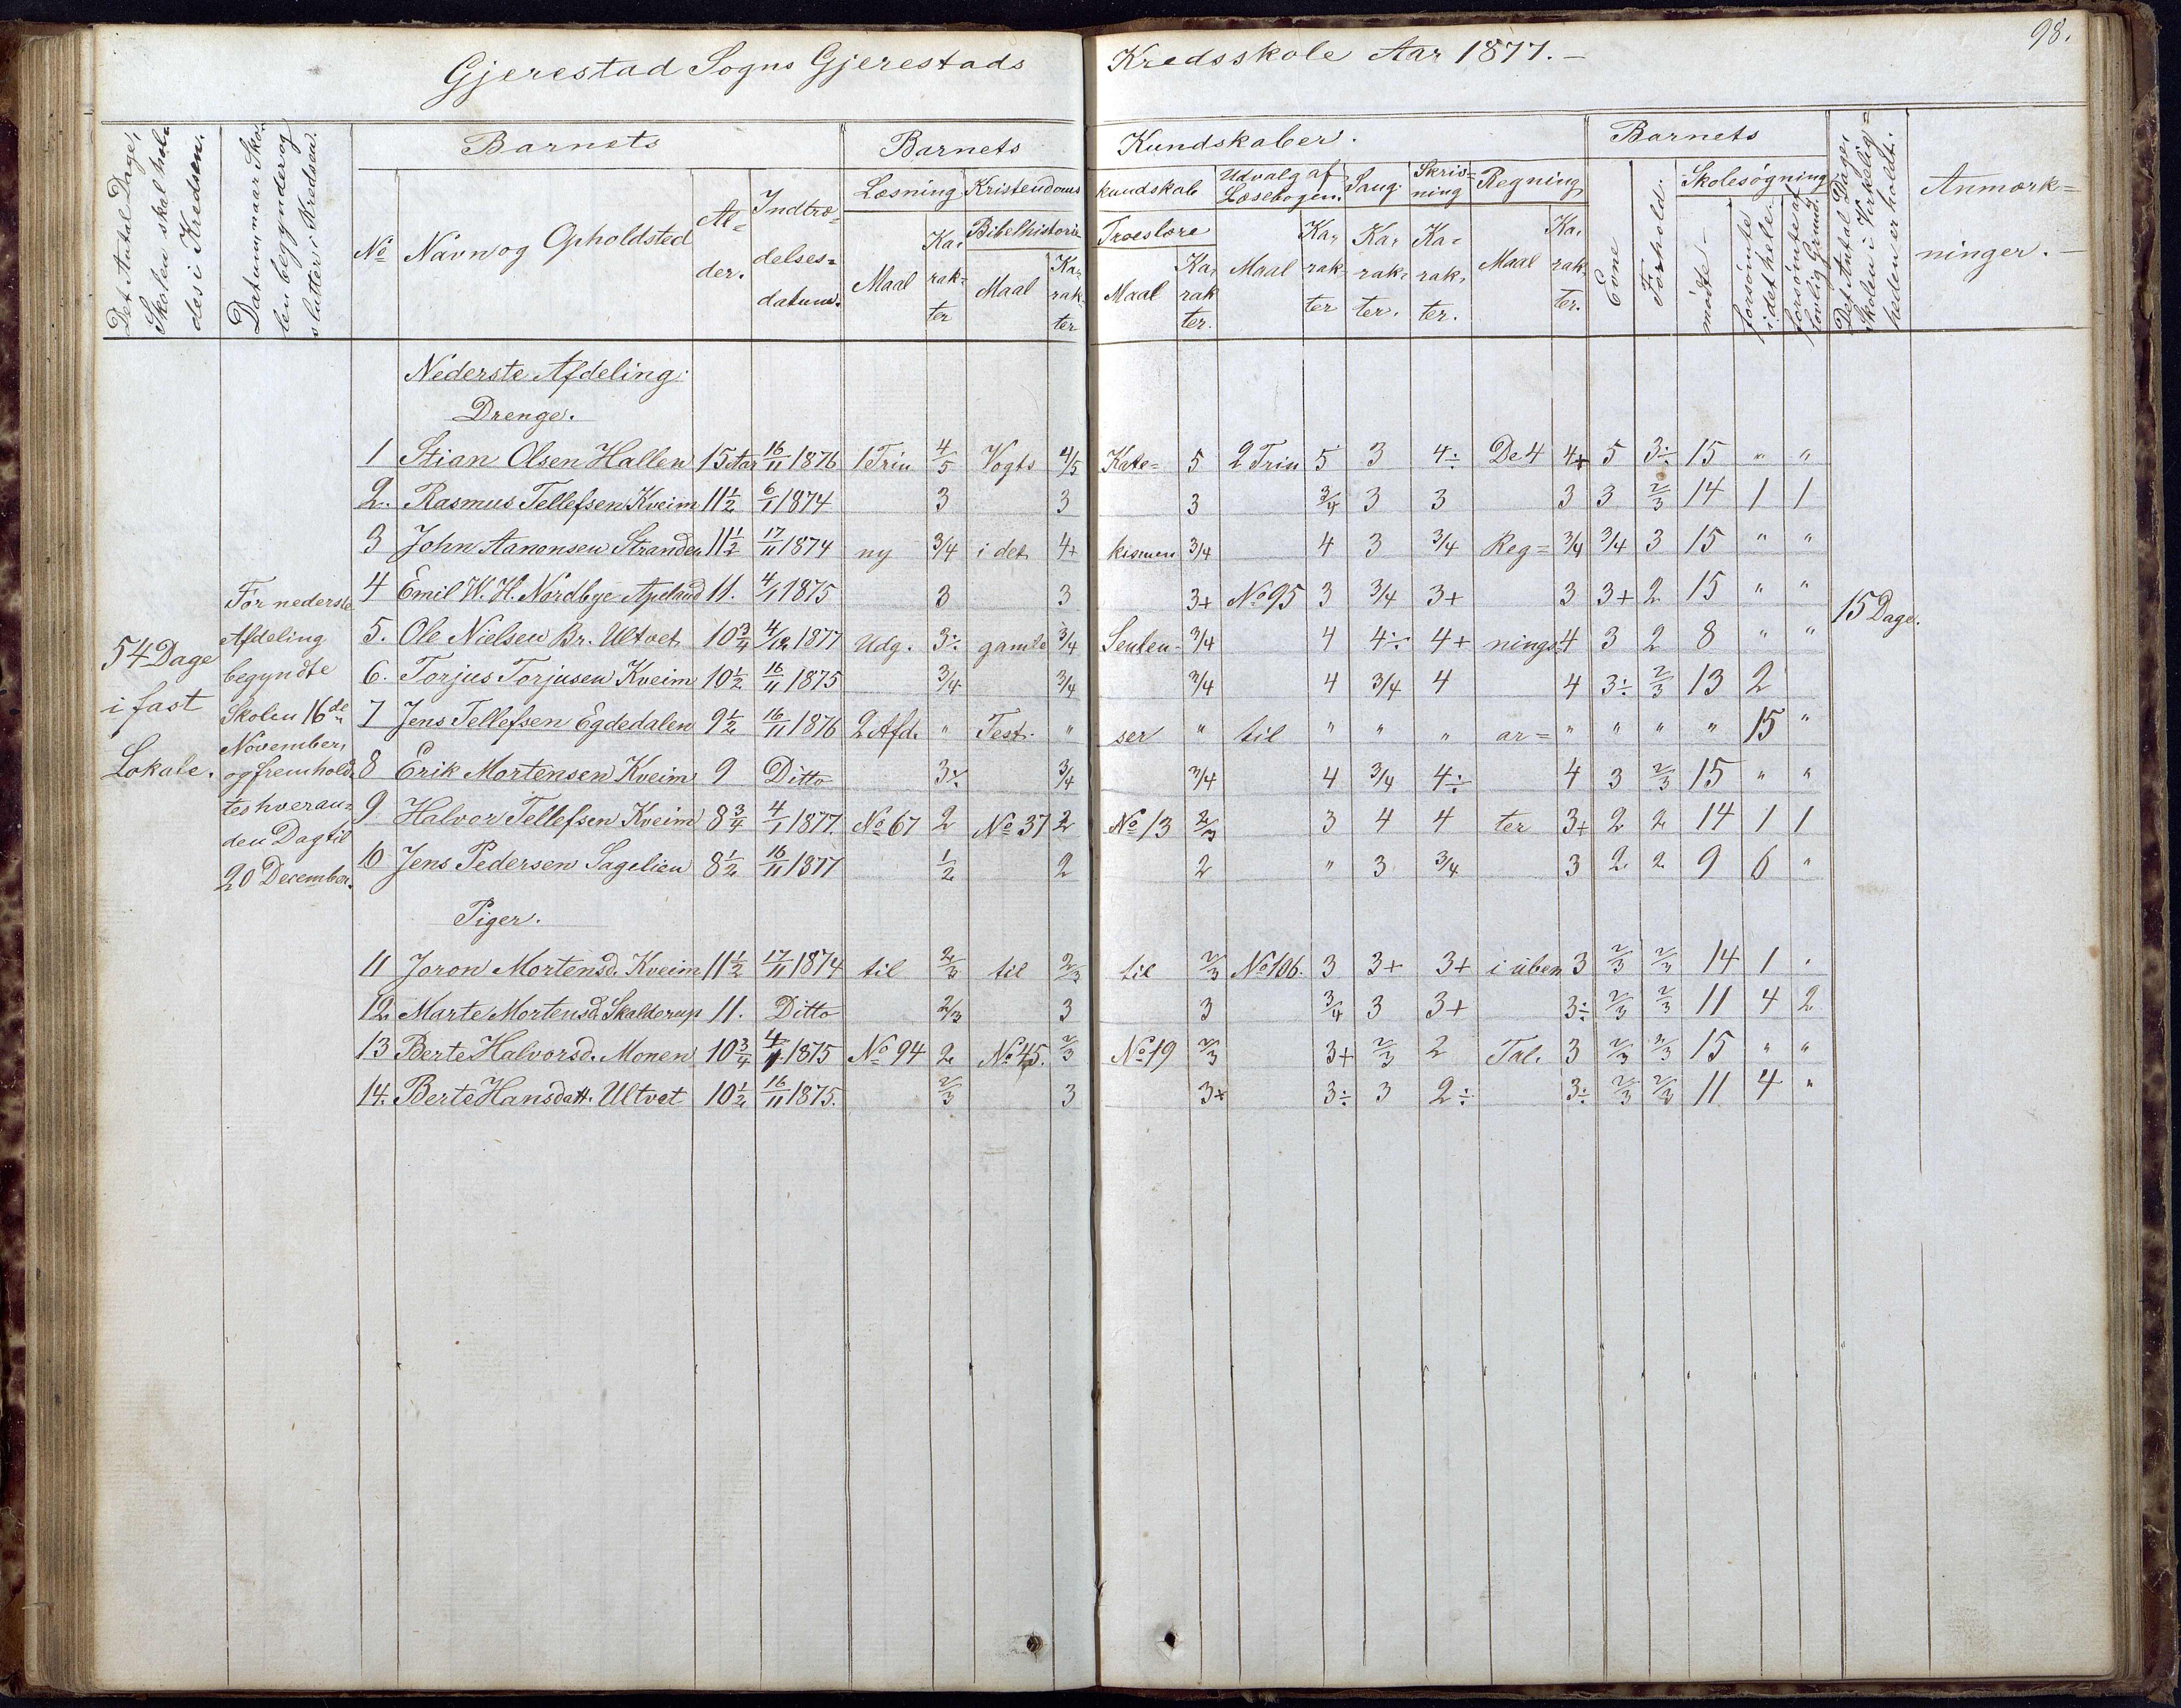 98.
Gjerestad Sogns Gjerestads Kredsskole Aar 1877. –
Det Antal Dage,
Skolen skal hol-
des i Kredsen.
Datum, naar Sko-
len begynder og
slutter i Kredsen.
Barnets
No
Navn og Opholdsted
Al=
der.
Indtræ=
delses=
datum.
Barnets Kundskaber.
Læsning
Maal
Ka-
rak-
ter
Kristendoms kundskab
Bibelhistorie
Maal
Ka-
rak-
ter
Troeslære
Maal
Ka-
rak
ter.
Udvalg af
Læsebogen.
Maal
Ka-
rak-
ter
Sang.
Ka-
rak-
ter.
Skriv=
ning
Ka-
rak-
ter.
Regning
Maal
Ka-
rak-
ter.
Barnets
Evne
Forhold.
Skolesøgning
mødte –
forsømte
i det hele.
forsømte af
lovlig Grund.
Det Antal Dage,
Skolen i Virkelig=
heden er holdt.
Anmærk=
ninger. –
54 Dage
i fast
Lokale.
For nederste
Afdeling
begyndte
Skolen 16de
November,
og fremhold-
tes hveran-
den Dag til
20 December.
Nederste Afdeling.
Drenge.
1 Stian Olsen Hallen 15 Aar 16/11 1876 1 Trin 4/5 Vogts 4/5 Kate= 5 2 Trin 5 3 4÷ De 4 4+ 5 3÷ 15 " "
2. Rasmus Tellefsen Kveim 11 1/2 6/1 1874 3 3 3 3/4 3 3 3 3 2/3 14 1 1
3 John Aanonsen Stranden 11 1/2 17/11 1874 ny 3/4 i det 4+ kismen 3/4 4 3 3/4 Reg= 3/4 3/4 3 15 " "
4 Emil W. H. Nordbye Apeland 11. 4/1 1875 3 3 3+ No 95 3 3/4 3+ 3 3+ 2 15 " "
5. Ole Nielsen Br. Ultvet 10 3/4 4/12 1877 Udg. 3÷ gamle 3/4 Senten- 3/4 4 4÷ 4+ nings 4 3 2 8 " "
6. Torjus Torjusen Kveim 10 1/2 16/11 1875 3/4 3/4 3/4 4 3/4 4 4 3÷ 2/3 13 2
7 Jens Tellefsen Egdedalen 9 1/2 16/11 1876 2 Afd. " Test. " ser " til " " " ar= " " " " 15 "
8 Erik Mortensen Kveim 9 Ditto 3÷ 3/4 3/4 4 3/4 4÷ 4 3 2/3 15 " "
9 Halvor Tellefsen Kveim 8 3/4 4/1 1877. No 67 2 No 37 2 No 13 2/3 3 4 4 ter 3+ 2 2 14 1 1
10 Jens Pedersen Sagelien 8 1/2 16/11 1877 1/2 2 2 " 3 3/4 3 2 2 9 6 "
15 Dage.
Piger.
11 Joron Mortensd. Kveim 11 1/2 17/11 1874 til 2/3 til 2/3 til 2/3 No 106. 3 3+ 3+ i üben 3 2/3 2/3 14 1 "
12. Marte Mortensd. Skalderup 11. Ditto 2/3 3 3 3/4 3 3+ 3÷ 2/3 2/3 11 4 2
13 Berte Halvorsd. Monen 10 3/4 4/1 1875 No 94 2 No 45. 2/3 No 19 2/3 3+ 2/3 2 Tal. 3 2/3 2/3 15 " "
14. Berte Hansdatt. Ultvet 10 1/2 16/11 1875. 2/3 3 3+ 3÷ 3 2÷ 3÷ 2/3 2/3 11 4 "